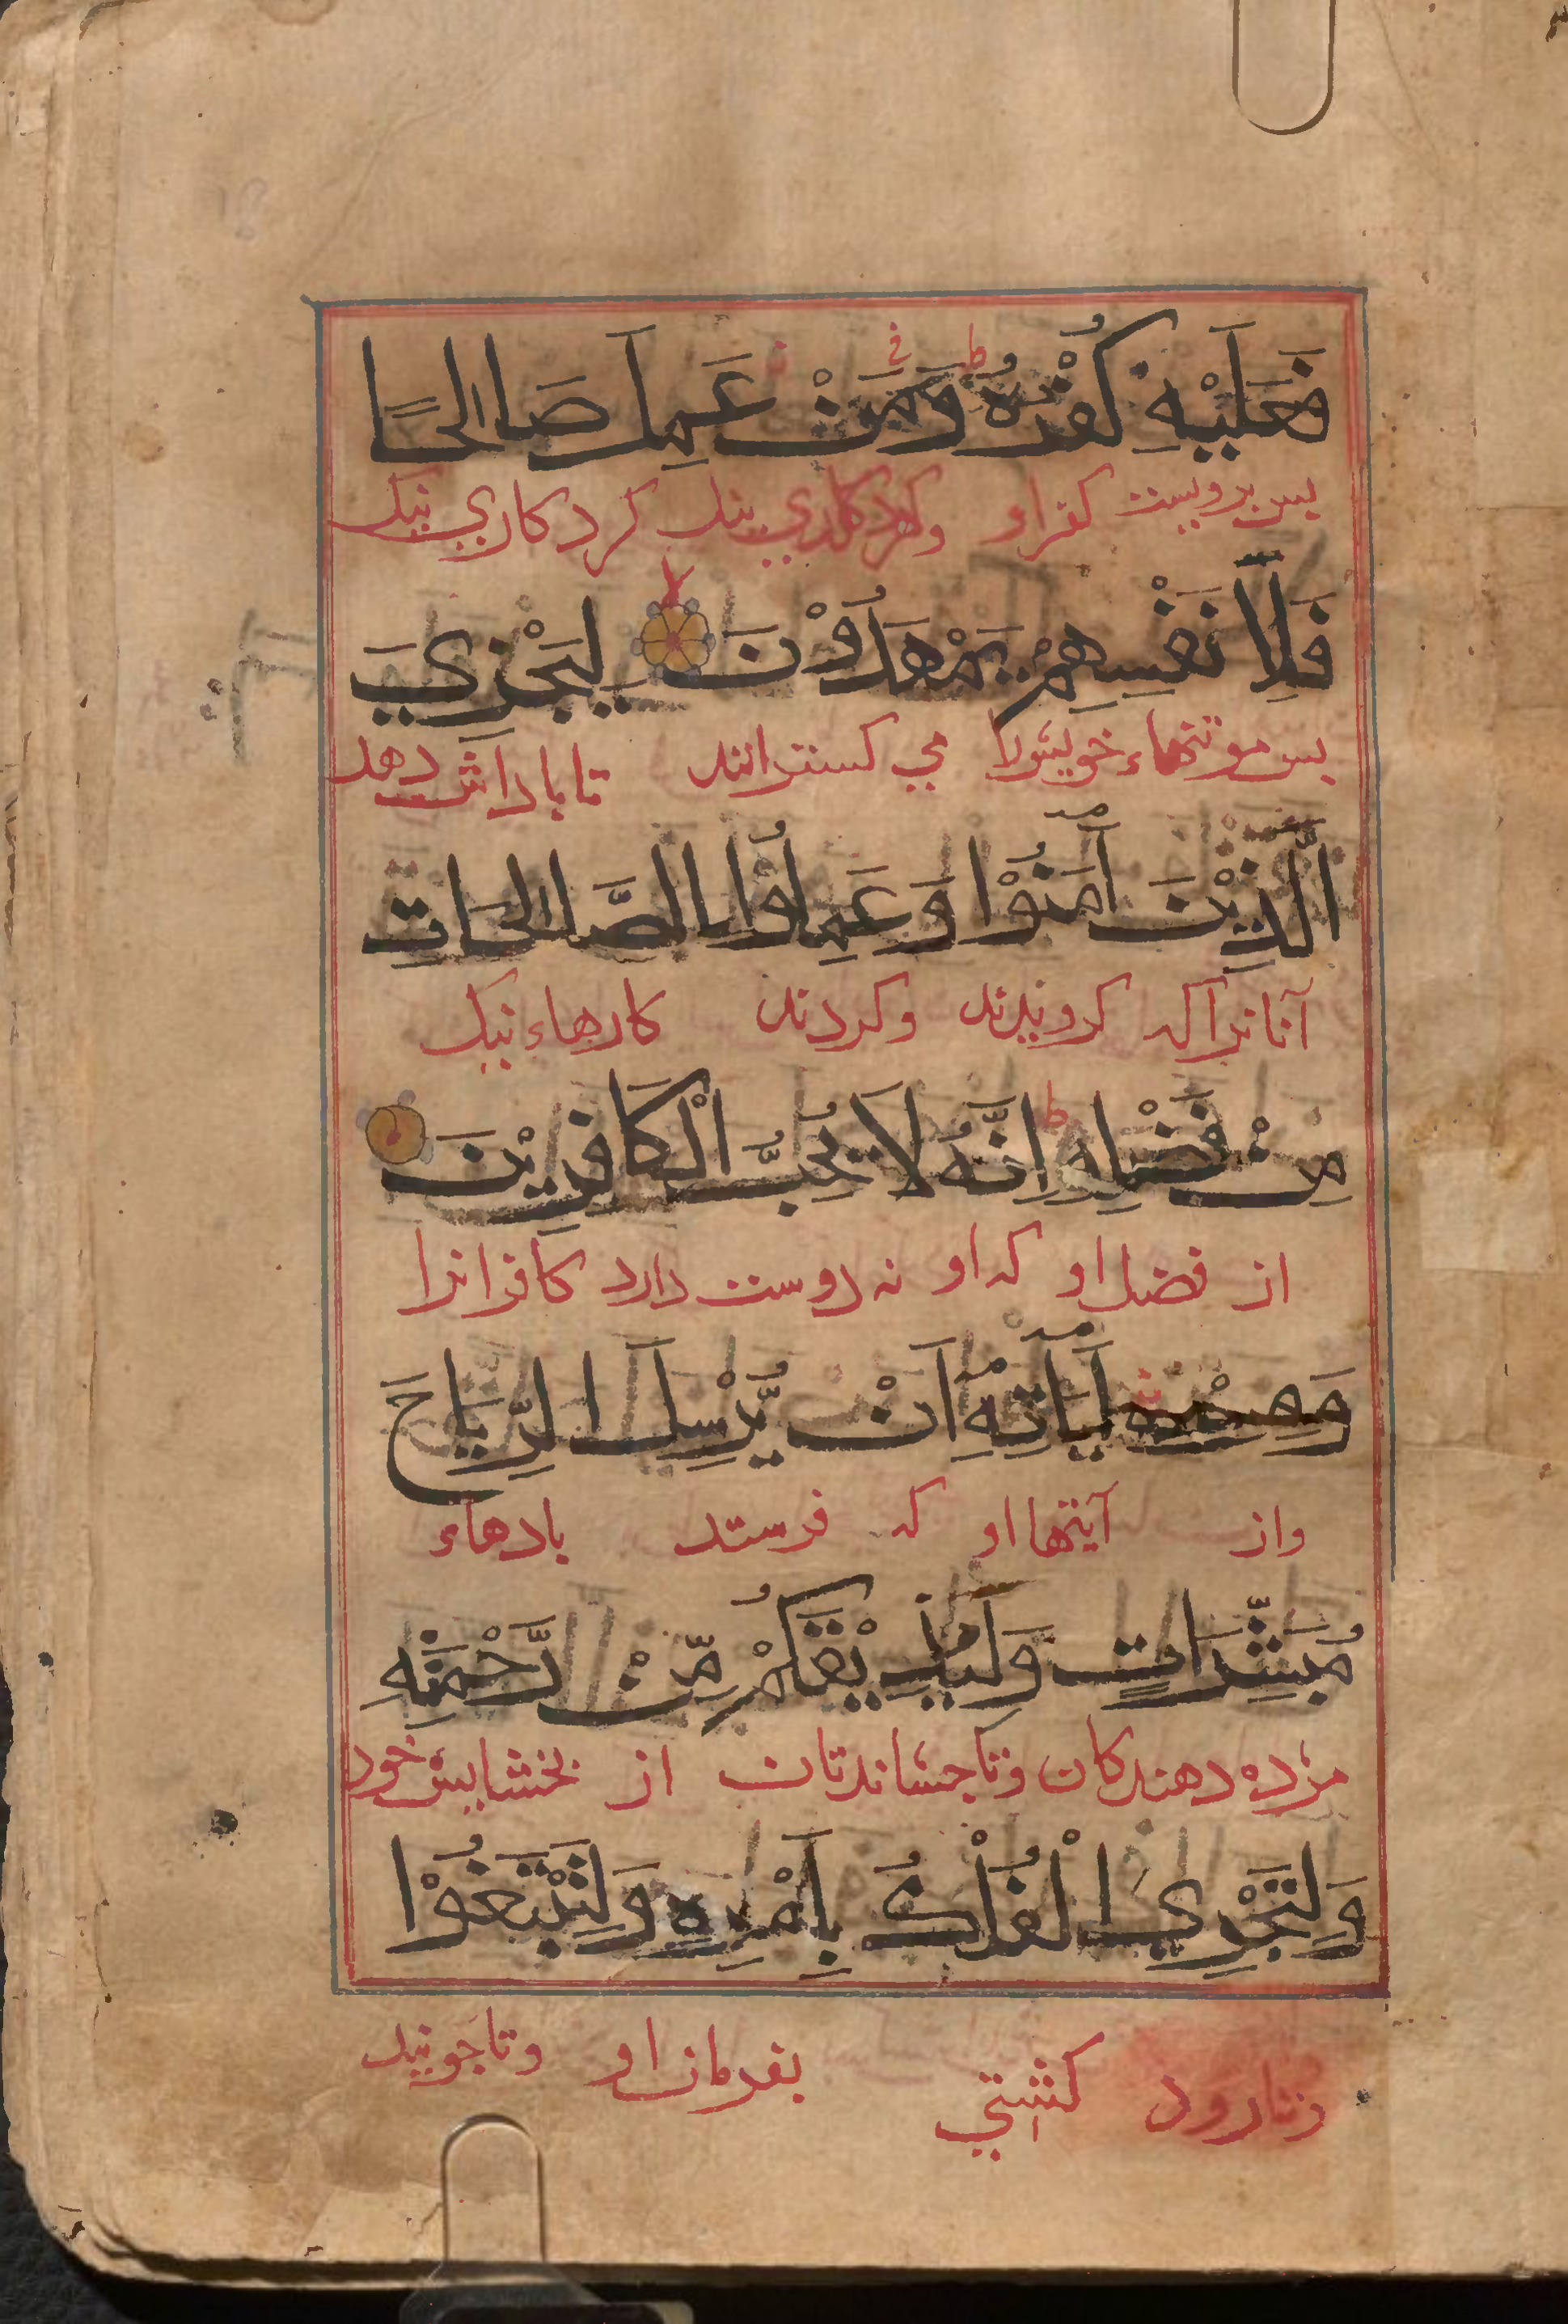 فَعَلَيْهِ كُفْرُهُ وَمَنْ عَمِلَ صَالِحًا
پس برویست کفر او وهرک کرد کاری نیک
فَلِاَنْفُسِهِمْ يَمْهَدُوْنَ لِيَجْزِيَ
پس مر تنهاء خویش را می کسترانند تا پاداش دهد
الَّذِيْنَ اٰمَنُوْا وَعَمِلُوا الصَّالِحَاتِ
آنانرا که کرویدند وکردند کارهاء نیک
مِنْ فَضْلِهِ اِنَّهُ لَا يُحِبُّ الْكَافِرِيْنَ
از فضل او که او نه دوست دارد کافرانرا
وَمِنْ اٰيَاتِهِ اَنْ يُّرْسِلَ الرِّيَاحَ
واز آیتها او که فرستد بادهاء
مُبَشِّرَاتٍ وَلِيُذِيْقَكُمْ مِّنْ رَّحْمَتِهِ
مژده دهندکان وتا چشاندتان از بخشایش خود
وَلِتَجْرِيَ الْفُلْكُ بِاَمْرِهِ وَلِتَبْتَغُوْا
وتا رود کشتی بفرمان او وتا جویید